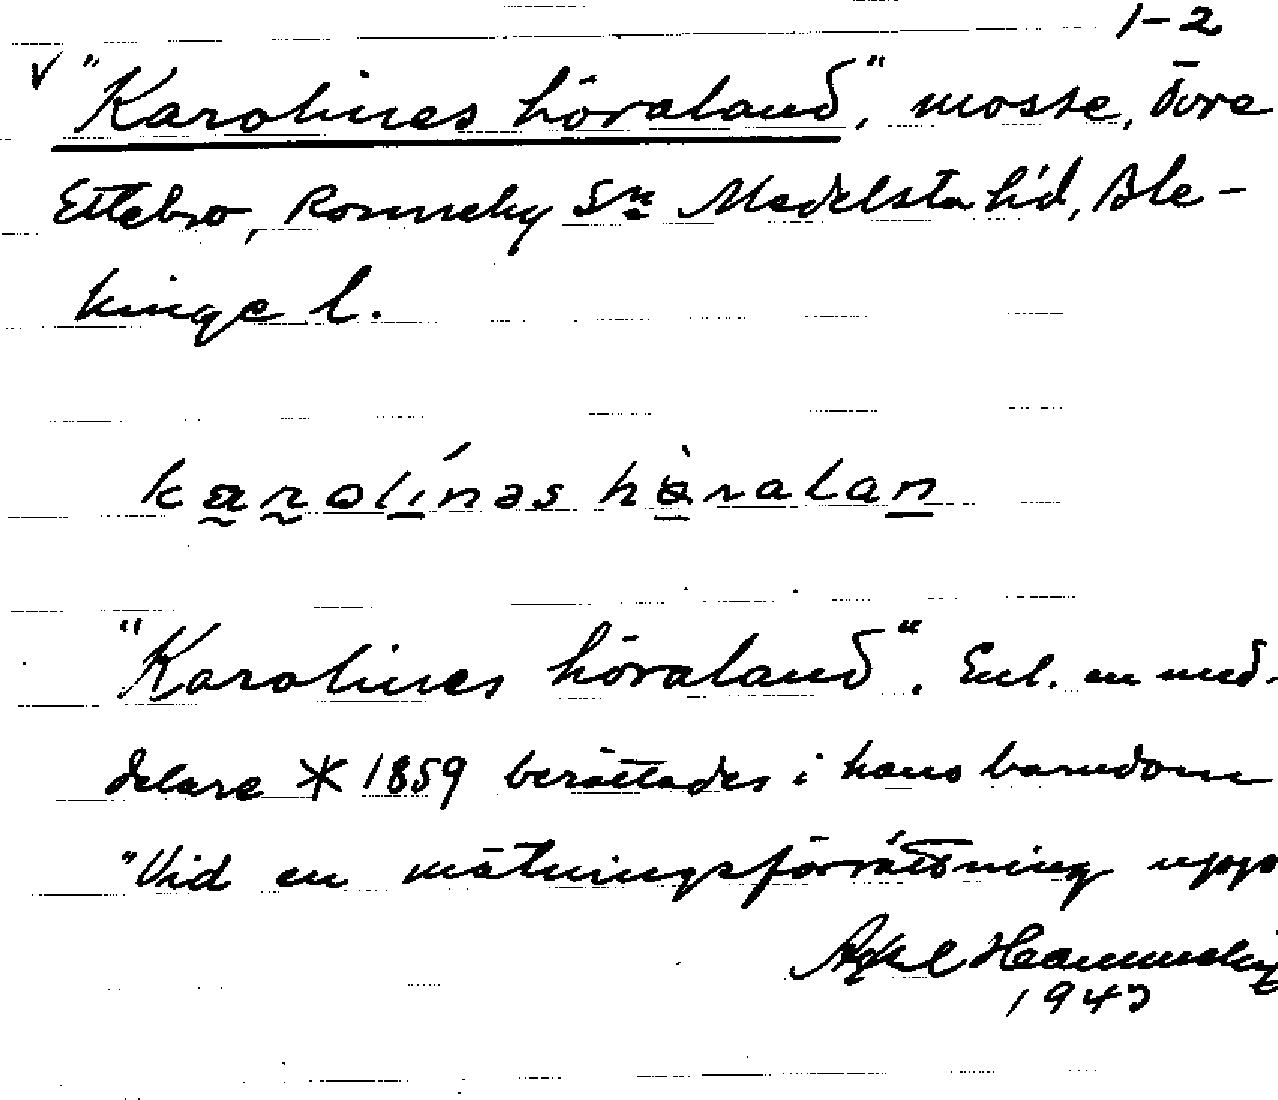 1-2
√ "Karolines höraland", mosse, Övre
Ettebro, Ronneby Sn Medelsta hd, Ble-
kinge l.
karolínəs hòralan
"Karolines höraland". Enl. en med-
delare * 1859 berättades i hans barndom
"Vid en mätningsförrättning uppe
Axel Hammarby
1947